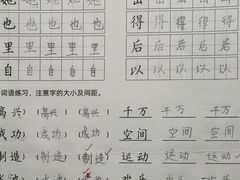 她 她 她 出 出 出
也 也 也 得 得 得
里 里 里 后 后 后
自 自 自 以 以 以
词语练习，注意字的大小及间距。
高兴（高兴）高兴 千万 千万 千万
成功（成功）成功 空间 空间 空间
制造（制造）（制造） 运动 运动 运动
欢乐 欢乐